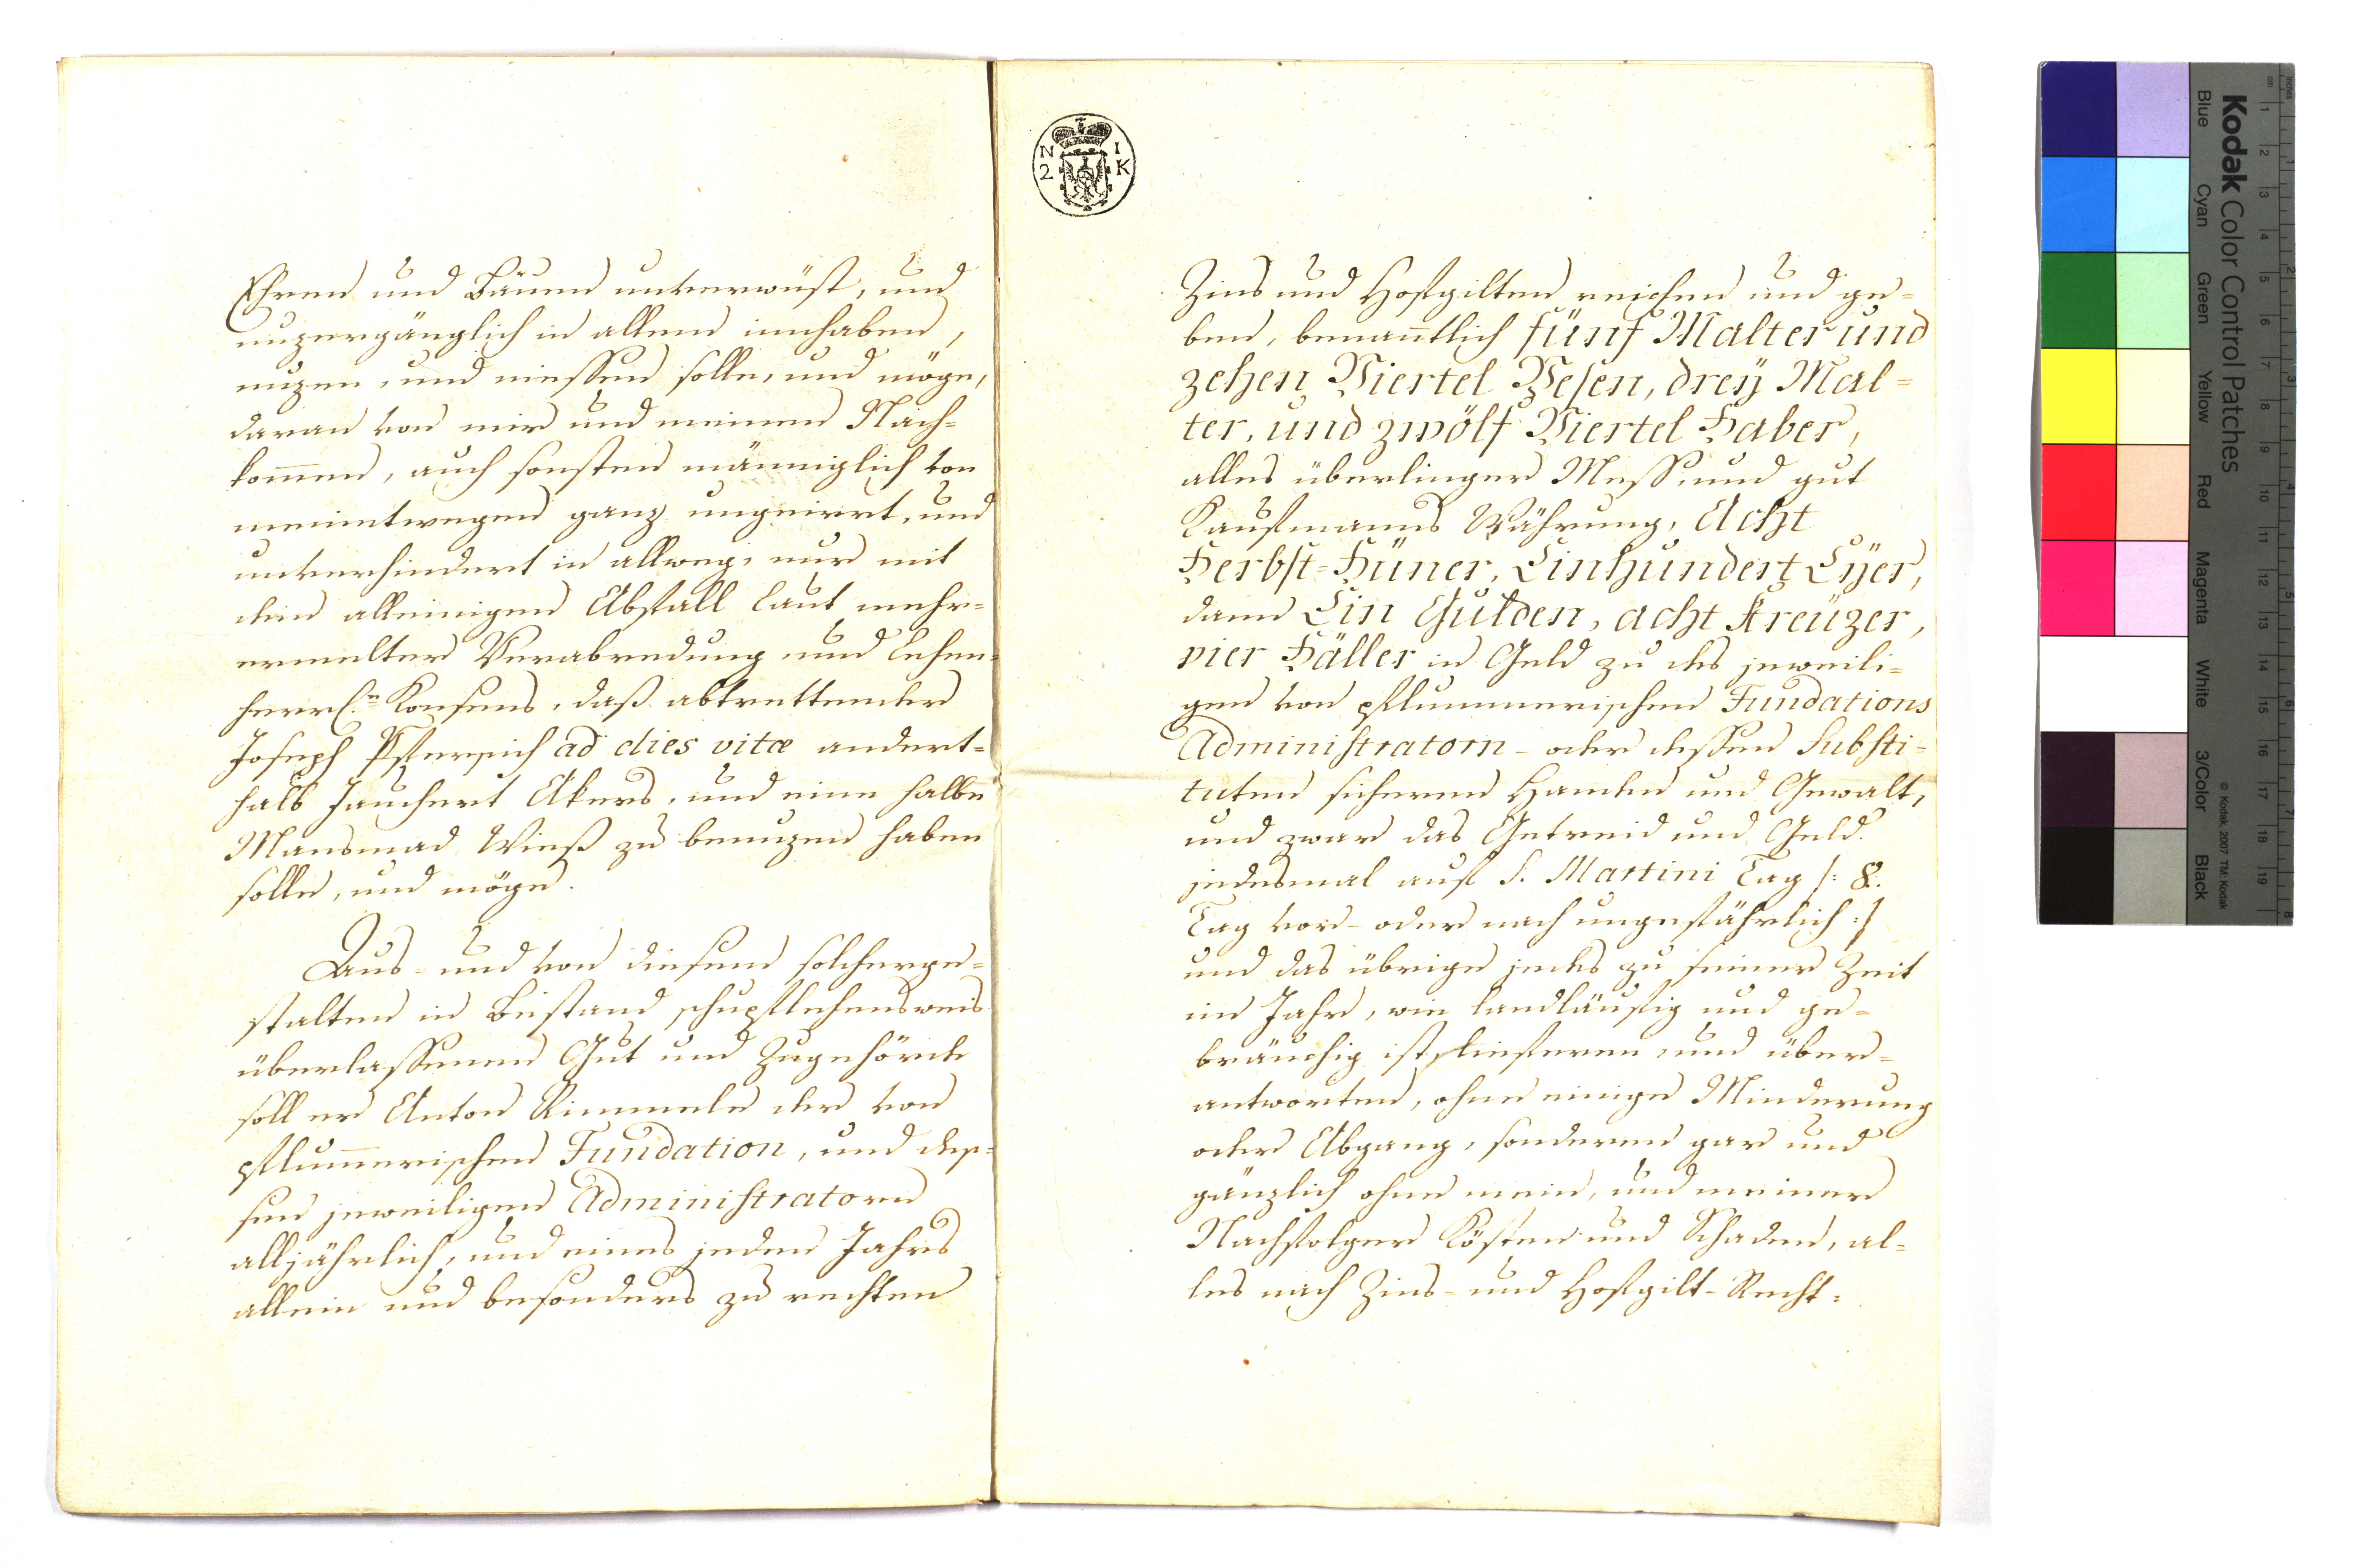 Ehren und Bäuen unverwüst, und
unzergänglich in allem innhaben,
nuzen, und niessen solle, und möge,
daran von mir und meinen Nach-
kom̄en, auch sonsten männiglich von
meinetwegen ganz ungeirrt, und
unverhindert in allweg, nur mit
dem alleinigen Abfall laut mehr-
ermelter Verabredung und Lehen-
herrl.n Konsens, daß abtrettender
Joseph Pfersich ad dies vitæ andert-
halb Jauchert Akers, und eine halbe
Mansmad Wieß zu benuzen haben
solle, und möge.
Aus- und von diesem solcherge-
stalten in Bestand schupflehensweis
überlassenen Gut und Zugehörde
soll er Anton Rimmele der von
pflum̄erischen Fundation, und des-
sen jeweiligen Administratorn
alljährlich, und eines jeden Jahrs
allein und besonders zu rechten
N I
2 K
Zins und Hofgilten reichen und ge-
ben, benan̄tlich fünf Malter und
zehen Viertel Vesen, dreÿ Mal-
ter, und zwölf Viertel Haber,
alles überlinger Mess, und gut
Kaufmanns Währung, Acht
Herbst-Hüner, Einhundert Eÿer,
dann Ein Gulden, acht Kreüzer,
vier Häller in Geld zu des jeweili-
gen von pflummerischen Fundations
Administratorn- oder dessen Substi-
tuten sicheren Handen und Gewalt,
und zwar das Getreid und Geld
jedesmal auf S. Martini Tag /: 8.
Tag vor- oder nach ungefährlich :/
und das übrige jedes zu seiner Zeit
im Jahr, wie landläufig und ge-
bräuchig ist, lieferen, und über-
antworten, ohne einige Minderung
oder Abgang, sonderen gar und
gänzlich ohne mein, und meiner
Nachfolger Kösten und Schaden, al-
les nach Zins- und Hofgilt-Recht-